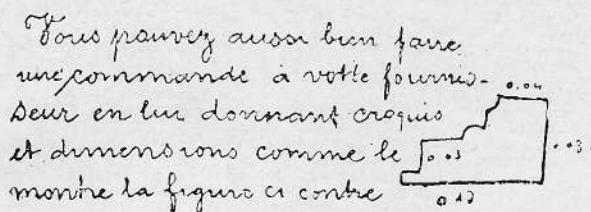 Vous pouvez aussi bien faire
une commande à votre fournis-
seur en lui donnant croquis
et dimensions comme le
montre la figure ci contre
0.04
0.03